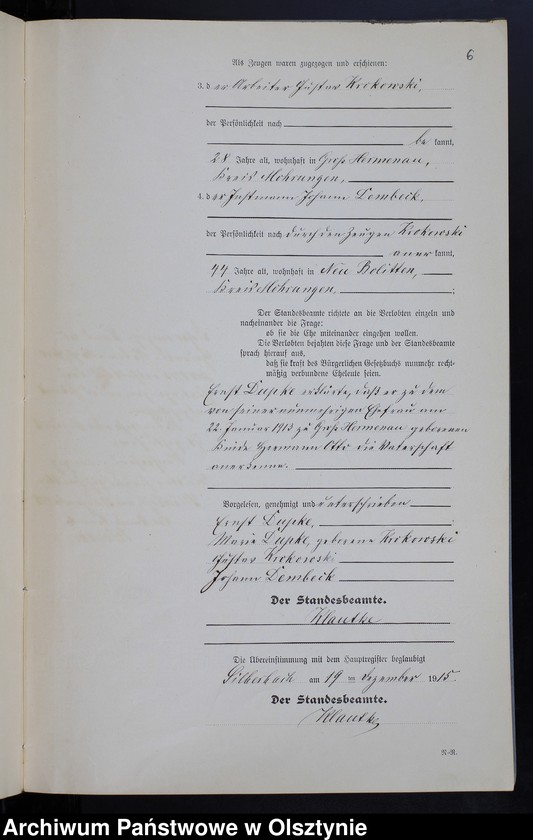 6
Als Zeugen waren zugezogen und erschienen:
3. der Arbeiter Gustav Krokowski,
der Persönlichkeit nach
be kannt,
28 Jahre alt, wohnhaft in Groß Hermenau,
Kreis Mohrungen,
4. der Instmann Johann Dembeck,
der Persönlichkeit nach durch den Zeugen Krokowski
aner kannt,
44 Jahre alt, wohnhaft in Neu Bolitten,
Kreis Mohrungen, ;
Der Standesbeamte richtete an die Verlobten einzeln und
nacheinander die Frage:
ob sie die Ehe miteinander eingehen wollen.
Die Verlobten bejahten diese Frage und der Standesbeamte
sprach hierauf aus,
daß sie kraft des Bürgerlichen Gesetzbuchs nunmehr recht-
mäßig verbundene Eheleute seien.
Ernst Dupke erklärte, daß er zu dem
von seiner nunmehrigen Ehefrau am
22. Januar 1913 zu Groß Hermenau geborenen
Kinde Hermann Otto die Vaterschaft
anerkenne.
Vorgelesen, genehmigt und unterschrieben
Ernst Dupke,
Marie Dupke, geborene Krokowski
Gustav Krokowski
Johann Dembeck
Der Standesbeamte.
Klautke
Die Übereinstimmung mit dem Hauptregister beglaubigt
Silberbach am 19 ten Dezember 1915.
Der Standesbeamte.
Klautke
R.-R.
Archiwum Państwowe w Olsztynie